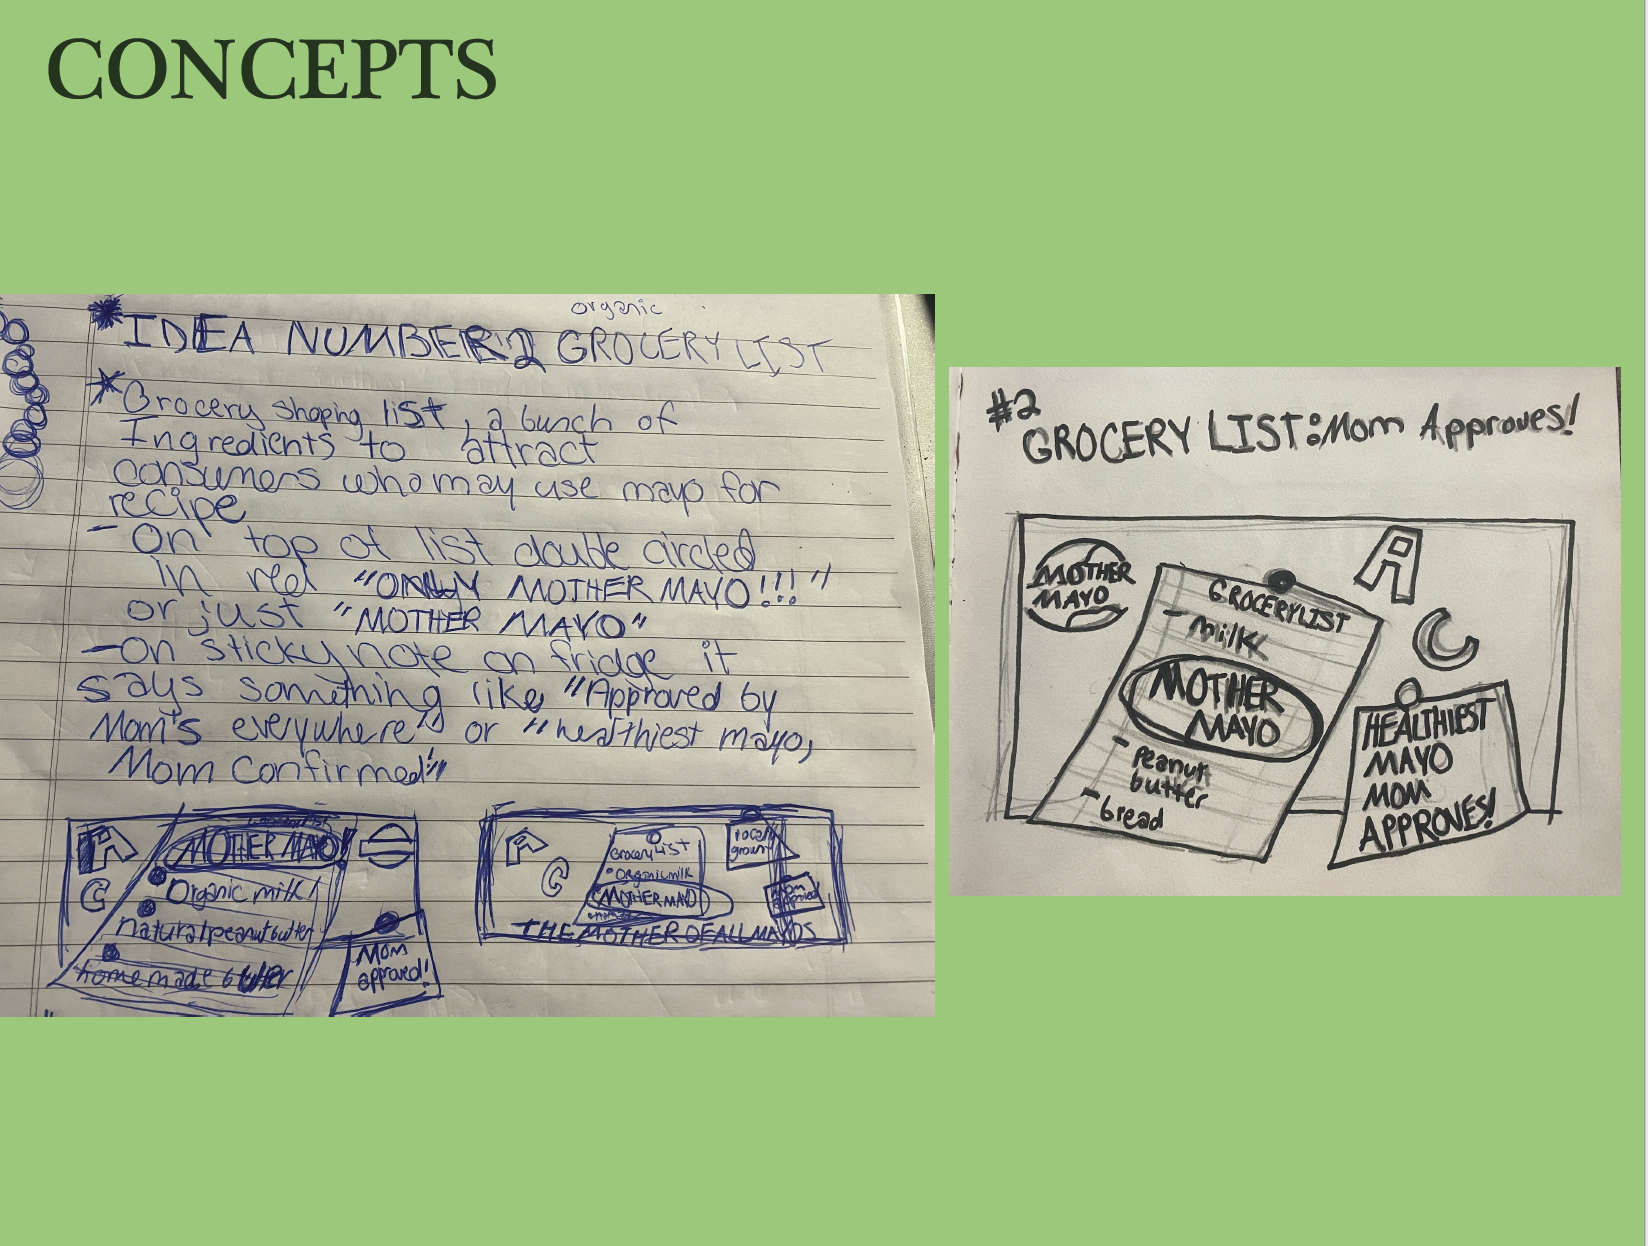 CONCEPTS
organic
*IDEA NUMBER 2 GROCERY LIST
*Grocery shoping list, a bunch of
Ingredients to attract
consumers who may use mayo for
recipe
- On top of list double circled
in red "ONLY MOTHER MAYO!!!"
or just "MOTHER MAYO"
- On sticky note on fridge it
says something like "Approved by
Mom's everywhere" or "healthiest mayo,
Mom Confirmed"
A
C
MOTHER MAYO!
Organic milk!
natural peanut butter
home made butter
Mom
approved!
A
C
Grocery List
• Organic milk
MOTHER MAYO
locally
grown
Mom
approved
THE MOTHER OF ALL MAYOS
#2
GROCERY LIST: Mom Approves!
MOTHER
MAYO
GROCERY LIST
- milk
MOTHER
MAYO
- peanut
butter
- bread
A
C
HEALTHIEST
MAYO
MOM
APPROVES!